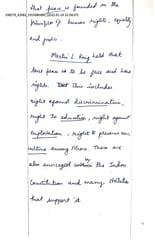 that peace is founded in the
principles of human rights, equality
and justice.
Martin L King held that
true peace is to be free and have
rights. This includes
right against discrimination,
right to education, right against
exploitation, right to preserve own
culture among others. These are
also envisaged by within the Indian
Constitution and many statutes
that support it